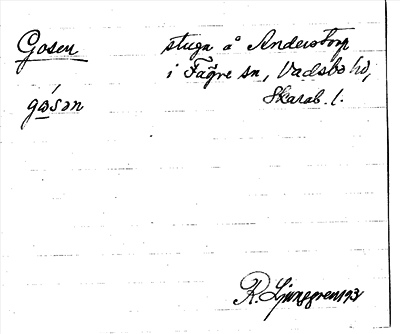 Gosen stuga å Anderstorp
i Fägre sn, Vadsbo hd,
gósən Skarab. l.
R. Ljunggren 193